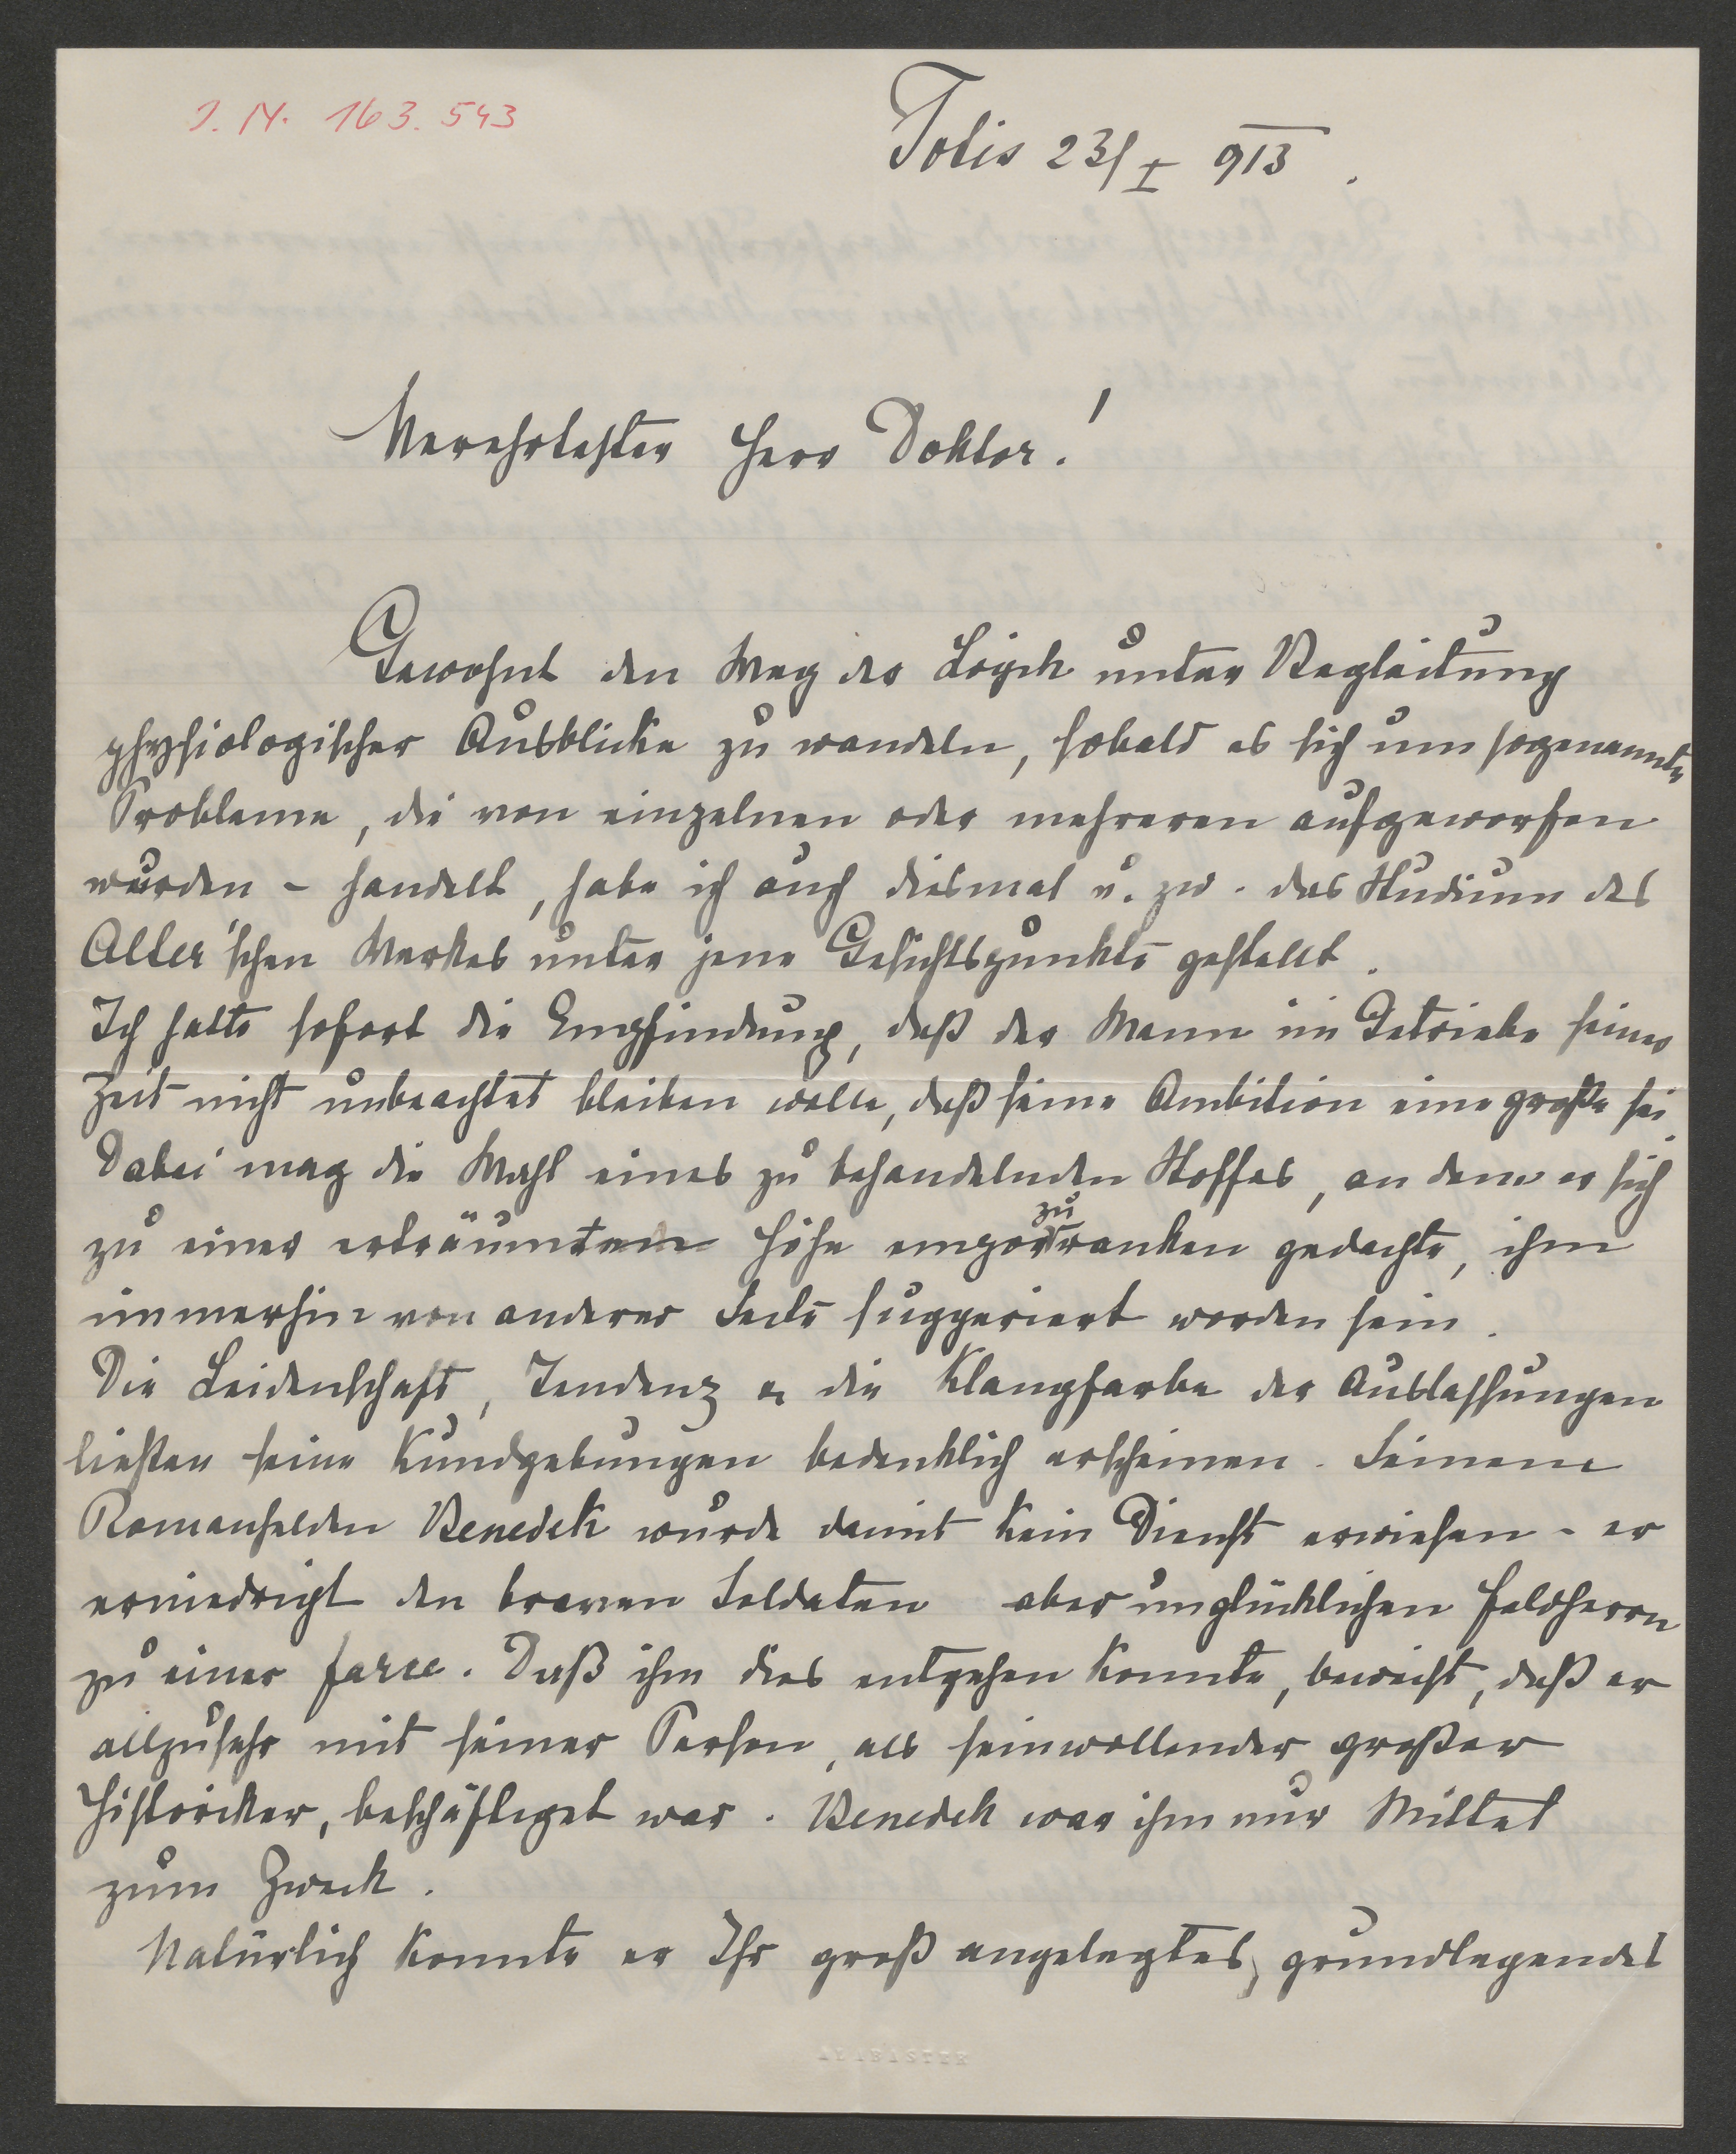 I. N. 163.543
Totis 23/I 913.
Verehrtester Herr Doktor!
Gewohnt den Weg der Logik unter Begleitung
physiologischer Ausblicke zu wandeln, sobald es sich um sogenannte
Probleme, die von einzelnen oder mehreren aufgeworfen
wurden – handelt, habe ich auch diesmal u. zw. das Studium des
Alter'schen Werkes unter jene Gesichtspunkte gestellt.
Ich hatte sofort die Empfindung, daß der Mann im Getriebe seiner
Zeit nicht unbeachtet bleiben wolle, daß seine Ambition eine große sei.
Dabei mag die Wahl eines zu behandelnden Stoffes, an dem er sich
zu einer erträumten Höhe emporzuranken gedachte, ihm
immerhin von anderer Seite suggeriert worden sein.
Die Leidenschaft, Tendenz u die Klangfarbe der Auslassungen
ließen seine Kundgebungen bedenklich erscheinen. Seinem
Romanhelden Benedek wurde damit kein Dienst erwiesen – er
erniedrigt den braven Soldaten aber unglücklichen Feldherrn
zu einer farce. Daß ihm dies entgehen konnte, beweist, daß er
allzusehr mit seiner Person, als seinwollender großer
Historiker, beschäftiget war. Benedek war ihm nur Mittel
zum Zweck.
Natürlich konnte er Ihr groß angelegtes, grundlegendes